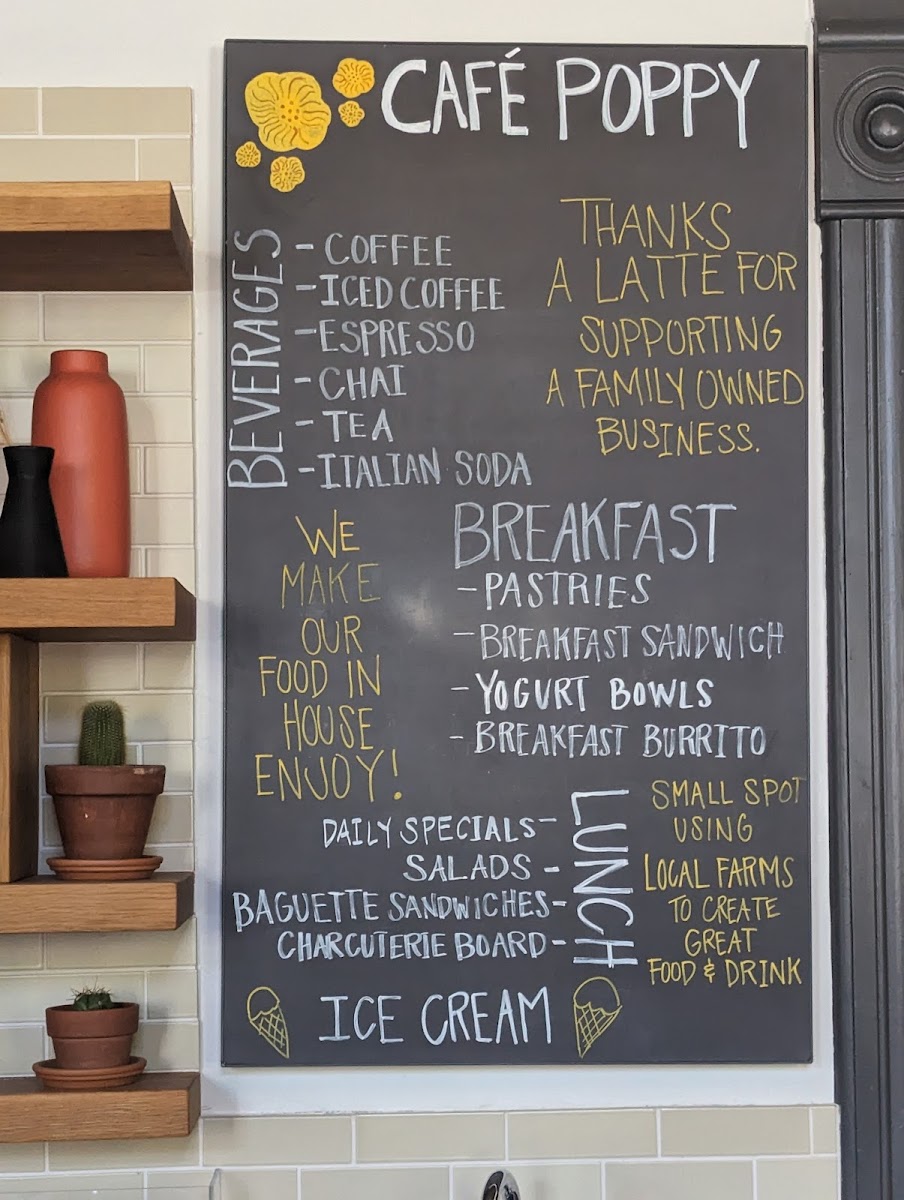 CAFÉ POPPY
BEVERAGES
- COFFEE
- ICED COFFEE
- ESPRESSO
- CHAI
- TEA
- ITALIAN SODA
THANKS
A LATTE FOR
SUPPORTING
A FAMILY OWNED
BUSINESS.
WE
MAKE
OUR
FOOD IN
HOUSE
ENJOY!
BREAKFAST
- PASTRIES
- BREAKFAST SANDWICH
- YOGURT BOWLS
- BREAKFAST BURRITO
LUNCH
DAILY SPECIALS -
SALADS -
BAGUETTE SANDWICHES -
CHARCUTERIE BOARD -
SMALL SPOT
USING
LOCAL FARMS
TO CREATE
GREAT
FOOD & DRINK
ICE CREAM